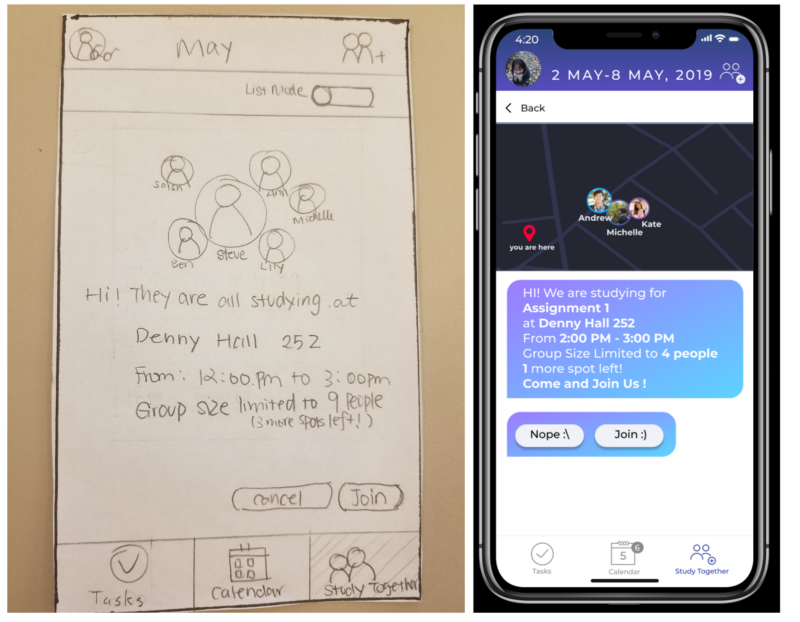 May
List Mode
Susan
Ann
Michelle
Ben
Steve
Lily
Hi! They are all studying at
Denny Hall 252
From: 12:00.Pm to 3:00pm
Group size limited to 9 People
(3 more spots left!)
Cancel
Join
Tasks
Calendar
Study Together
4:20
2 MAY-8 MAY, 2019
Back
Andrew
Kate
Michelle
you are here
HI! We are studying for
Assignment 1
at Denny Hall 252
From 2:00 PM - 3:00 PM
Group Size Limited to 4 people
1 more spot left!
Come and Join Us !
Nope :\
Join :)
5
6
Tasks
Calendar
Study Together